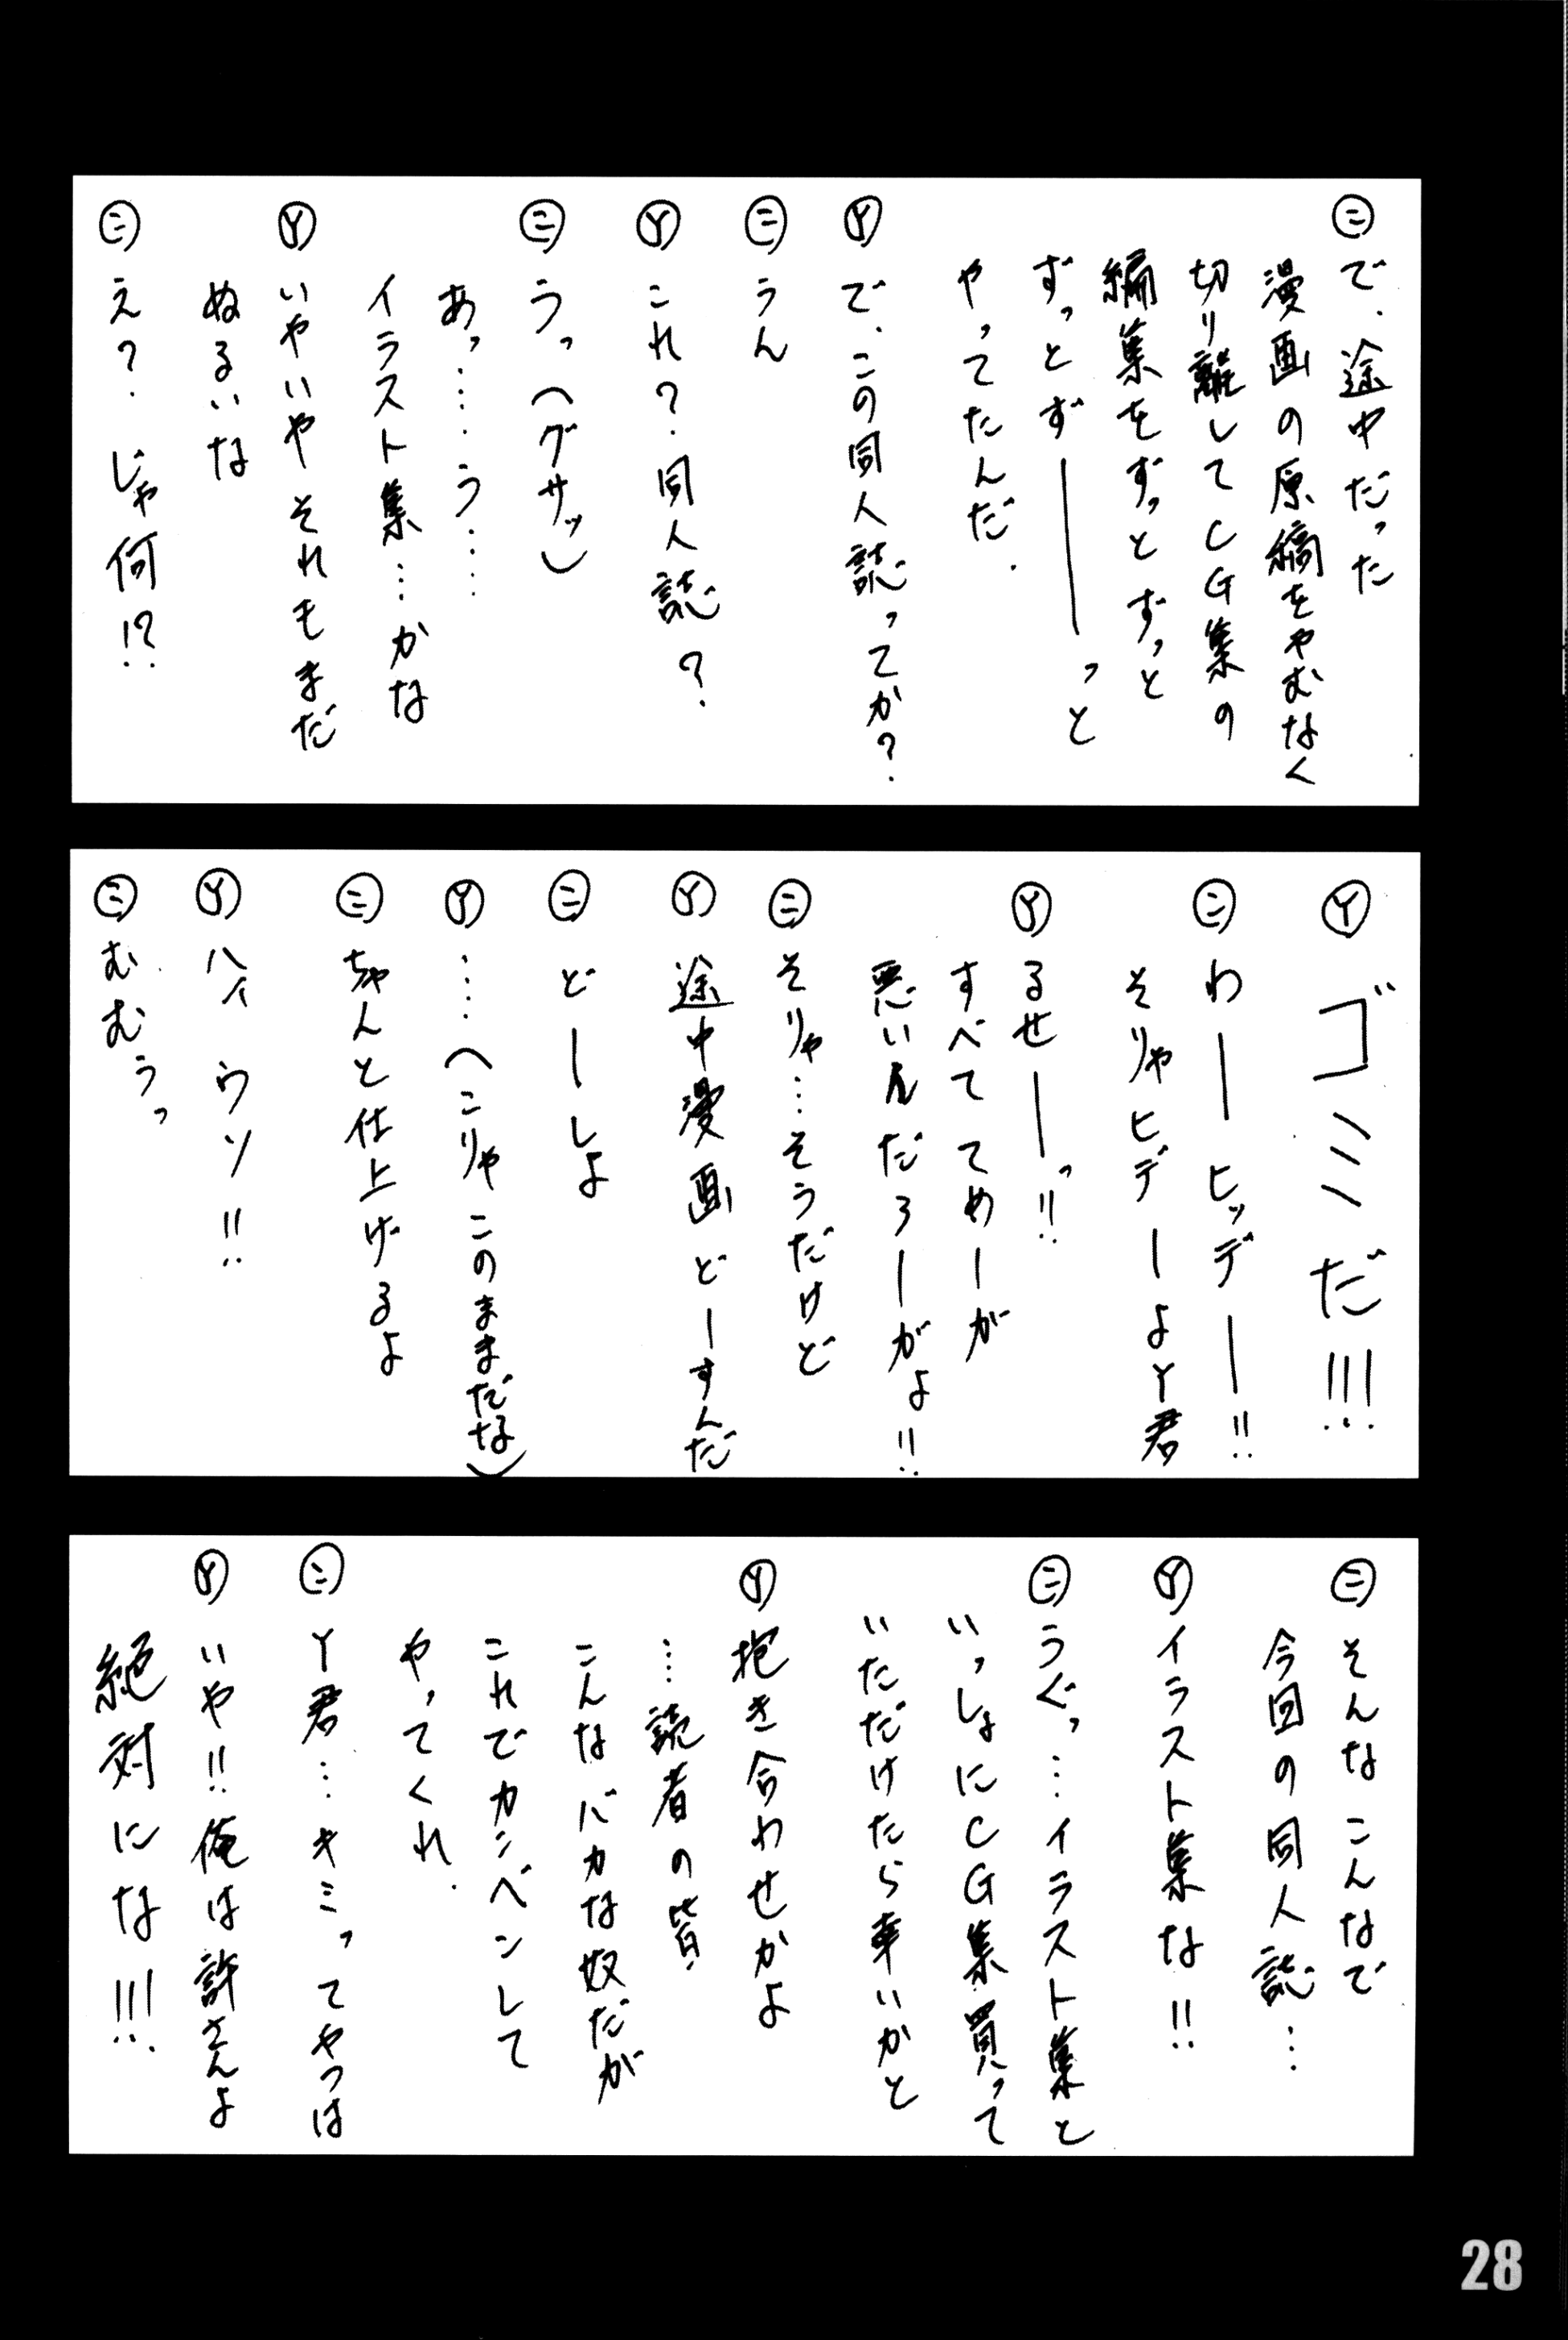 ㊁で、途中だった
漫画の原稿をやむなく
切り離してCG集の
編集をずっとずっと
ずっとず――――っと
やってたんだ.
Ⓨで、この同人誌ってか?
㊁うん
Ⓨこれ?同人誌?
㊁うっ(グサッ)
あっ……う……
イラスト集…かな
Ⓨいやいやそれもまだ
ぬるいな
㊁え?じゃ何!?
Ⓨゴミだ!!!
㊁わ――ヒッデ――!!
そりゃヒデーよY君
Ⓨるせ――っ!!
すべててめーが
悪いんだろーがよ!!
㊁そりゃ…そうだけど
Ⓨ途中漫画どーすんだ
㊁どーしよ
Ⓨ……(こりゃこのままだな)
㊁ちゃんと仕上げるよ
Ⓨハイウソ!!
㊁むむぅっ
㊁そんなこんなで
今回の同人誌…
Ⓨイラスト集な!!
㊁うぐっ…イラスト集と
いっしょにCG集買って
いただけたら幸いかと
Ⓨ抱き合わせかよ
…読者の皆、
こんなバカな奴だが
これでカンベンして
やってくれ.
㊁Y君…キミってやつは
Ⓨいや!!俺は許さんよ
絶対にな!!!
28